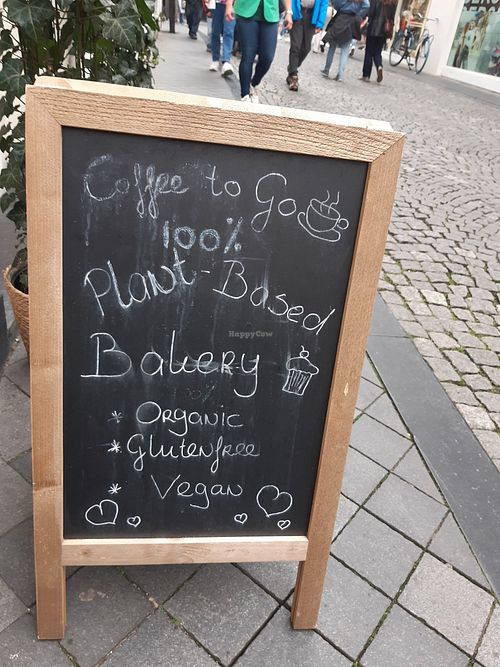 Coffee to Go
100%
Plant-Based
Bakery
* Organic
* Glutenfree
* Vegan
HappyCow